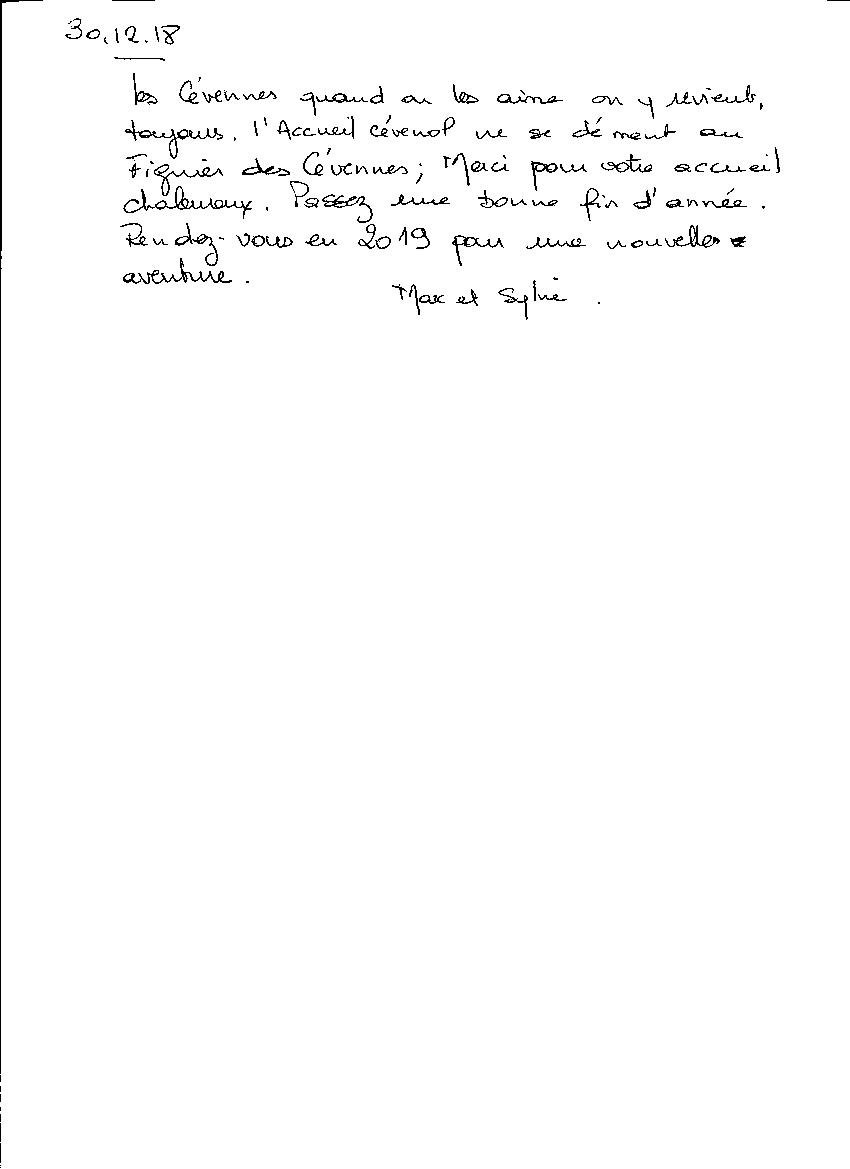 30.12.18
Les Cévennes quand on les aime on y revient,
toujours. l'Accueil cévenol ne se dément au
Figuier des Cévennes; Merci pour votre accueil
chaleureux. Passez une bonne fin d'année.
Rendez-vous en 2019 pour une nouvelle
aventure.
Max et Sylvie.